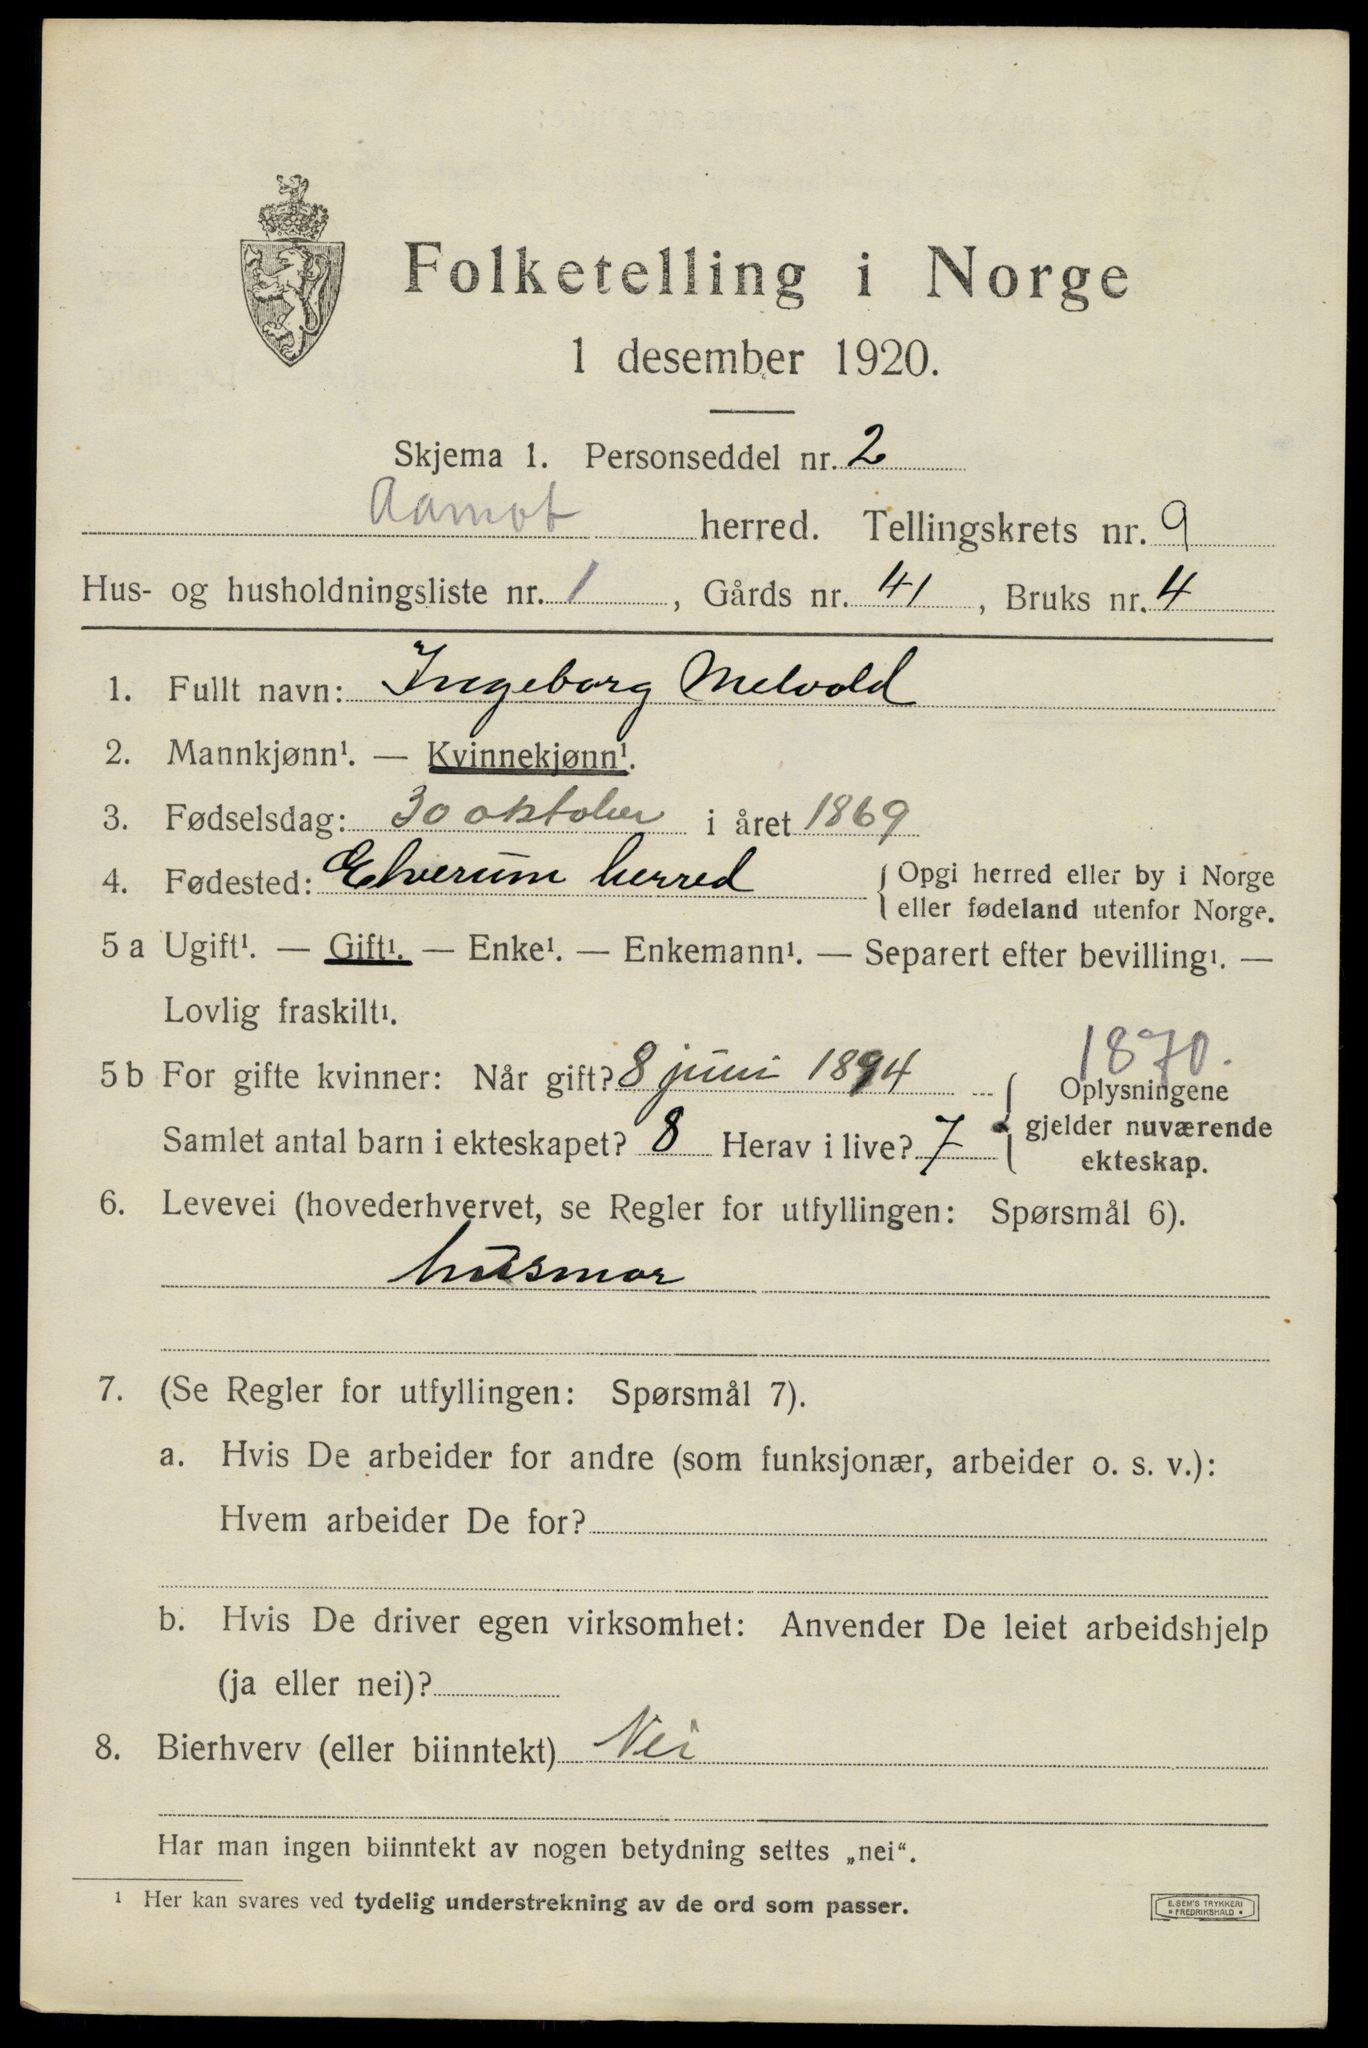 Folketelling i Norge
1 desember 1920.
Skjema 1. Personseddel nr. 2
Aamot herred. Tellingskrets nr. 9
Hus- og husholdningsliste nr. 1, Gårds nr. 41, Bruks nr. 4
1. Fullt navn: Ingeborg Melvold
2. Mannkjønn¹. — Kvinnekjønn¹.
3. Fødselsdag: 30 oktober i året 1869
4. Fødested: Elverum herred { Opgi herred eller by i Norge
eller fødeland utenfor Norge.
5 a Ugift¹. — Gift¹. — Enke¹. — Enkemann¹. — Separert efter bevilling¹. —
Lovlig fraskilt¹.
1870.
5 b For gifte kvinner: Når gift? 8 juni 1894 { Oplysningene
gjelder nuværende
Samlet antal barn i ekteskapet? 8 Herav i live? 7
ekteskap.
6. Levevei (hovederhvervet, se Regler for utfyllingen: Spørsmål 6).
husmor
7. (Se Regler for utfyllingen: Spørsmål 7).
a. Hvis De arbeider for andre (som funksjonær, arbeider o. s. v.):
Hvem arbeider De for?
b. Hvis De driver egen virksomhet: Anvender De leiet arbeidshjelp
(ja eller nei)?
8. Bierhverv (eller biinntekt) Nei
Har man ingen biinntekt av nogen betydning settes „nei“.
¹ Her kan svares ved tydelig understrekning av de ord som passer.
E. SEM'S TRYKKERI
FREDRIKSHALD